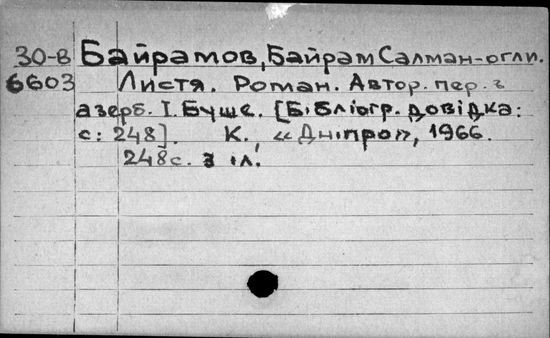 30-в Байрамов, Байрам Салман-огли.
6603 Листя. Роман. Автор. пер. з
азерб. І. Буше. [Бібліогр. довідка:
с: 248]. К., «Дніпро», 1966.
248с. з іл.